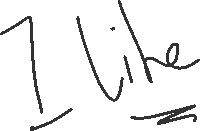 I like